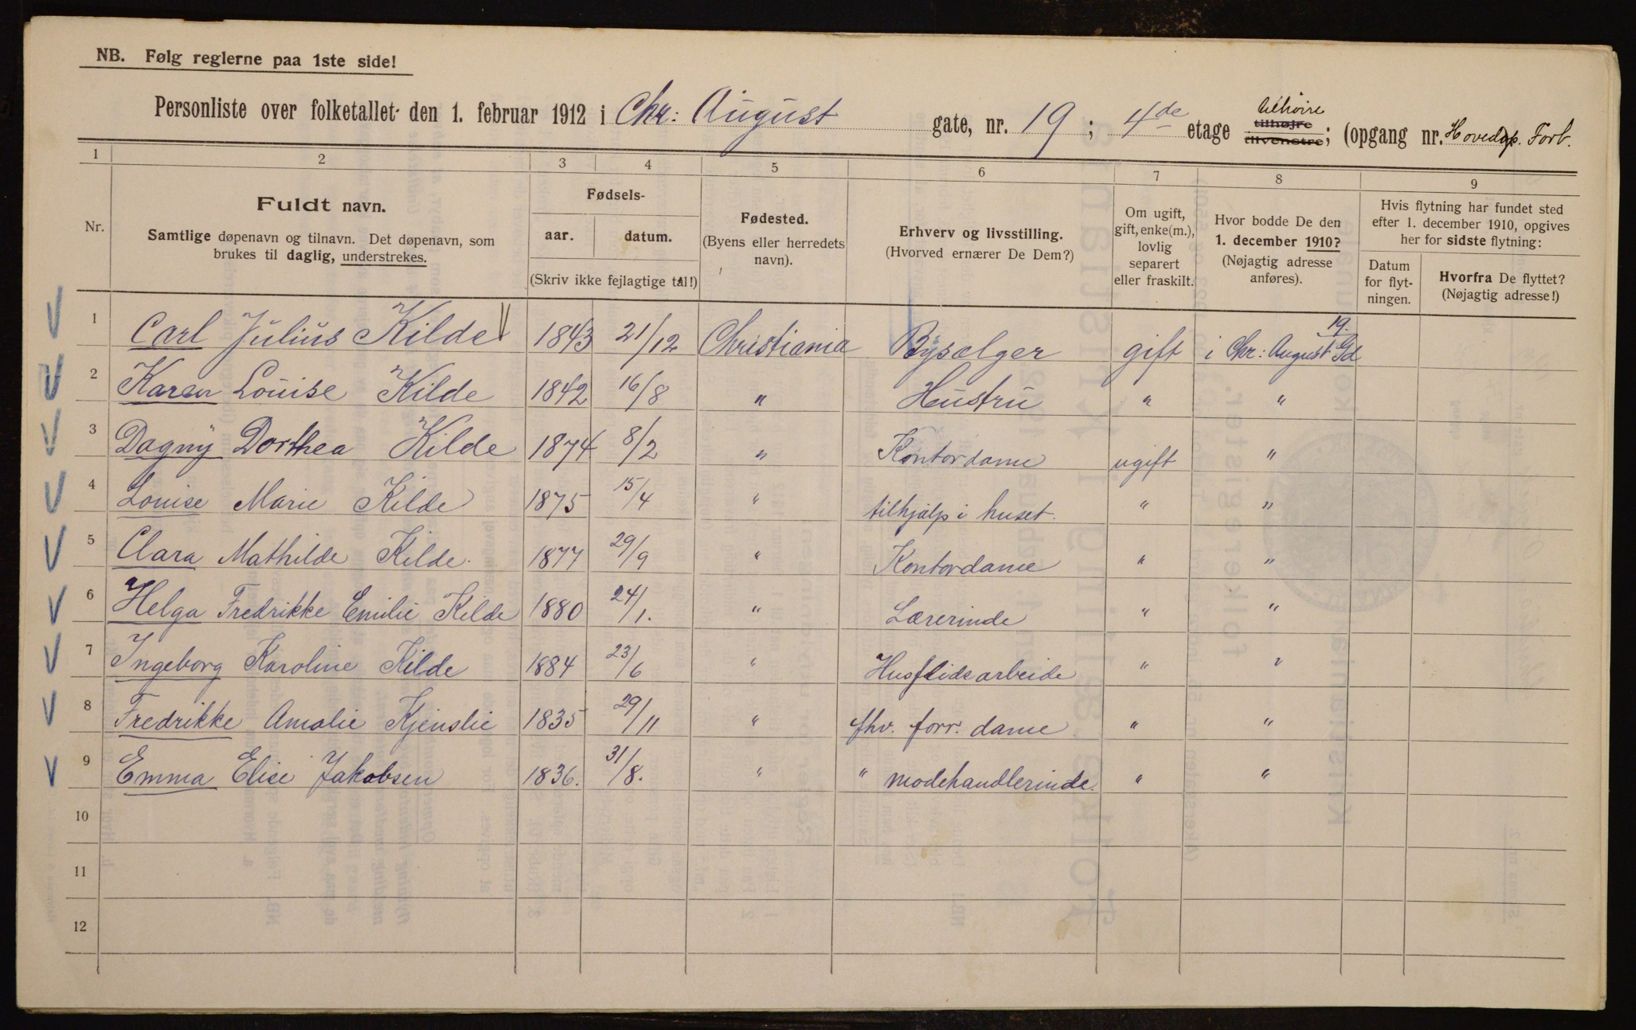 NB. Følg reglerne paa 1ste side!
Personliste over folketallet den 1. februar 1912 i Chr: August gate, nr. 19 ; 4de etage tilhøire tilhøjre tilvenstre; (opgang nr. Hovedop. Forb.
1 2 3 4 5 6 7 8 9
Nr.
Fuldt navn.
Samtlige døpenavn og tilnavn. Det døpenavn, som
brukes til daglig, understrekes.
Fødsels-
aar. datum.
(Skriv ikke fejlagtige tal!)
Fødested.
(Byens eller herredets
navn).
Erhverv og livsstilling.
(Hvorved ernærer De Dem?)
Om ugift,
gift, enke(m.),
lovlig
separert
eller fraskilt.
Hvor bodde De den
1. december 1910?
(Nøjagtig adresse
anføres).
Hvis flytning har fundet sted
efter 1. december 1910, opgives
her for sidste flytning:
Datum
for flyt-
ningen.
Hvorfra De flyttet?
(Nøjagtig adresse!)
1 Carl Julius Kilde 1843 21/12 Christiania Bysælger gift i Chr: August Gd 19.
2 Karen Louise Kilde 1842 16/8 " Hustru " "
3 Dagny Dorthea Kilde 1874 8/2 " Kontordame ugift "
4 Louise Marie Kilde 1875 15/4 " tilhjælp i huset. " "
5 Clara Mathilde Kilde. 1877 29/9 " Kontordame " "
6 Helga Fredrikke Emilie Kilde 1880 24/1. " Lærerinde " "
7 Ingeborg Karoline Kilde 1884 23/6 " Husflidsarbeide " "
8 Fredrikke Amalie Kjenslie 1835 29/11 " fhv. forr. dame " "
9 Emma Elise Jakobsen 1836. 31/8. " " modehandlerinde. " "
10
11
12